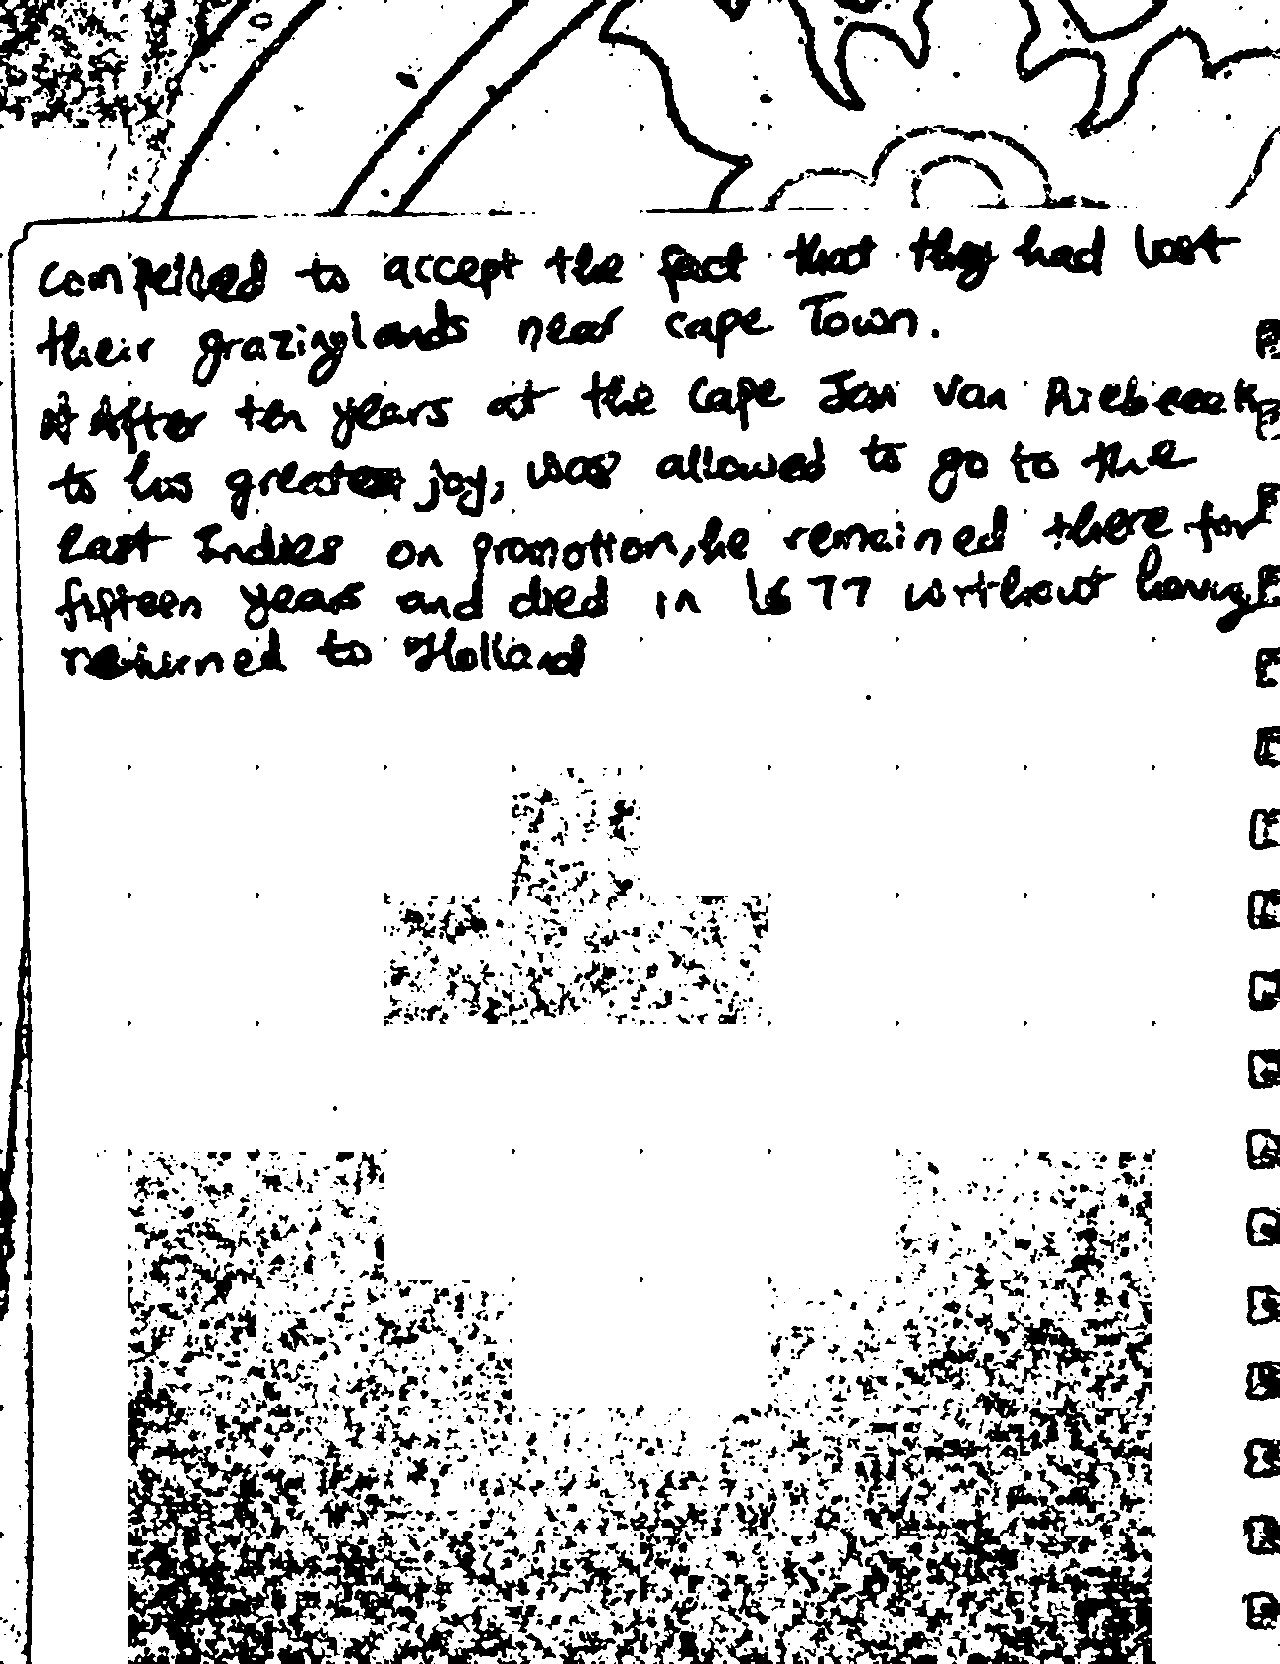 compelled to accept the fact that they had lost
their grazinglands near cape Town.
After ten years at the Cape Jan van Riebeeck
to his great joy, was allowed to go to the
East Indies on promotion, he remained there for
fifteen years and died in 1677 without having
returned to Holland